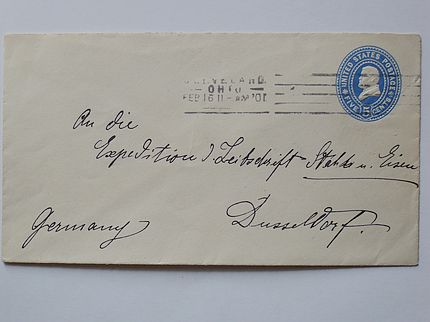 CLEVELAND
OHIO
FEB 16 11- AM '01
UNITED STATES POSTAGE
FIVE CENTS
5
An die
Expedition d. Zeitschrift Stahl u. Eisen
Dusseldorf.
Germany